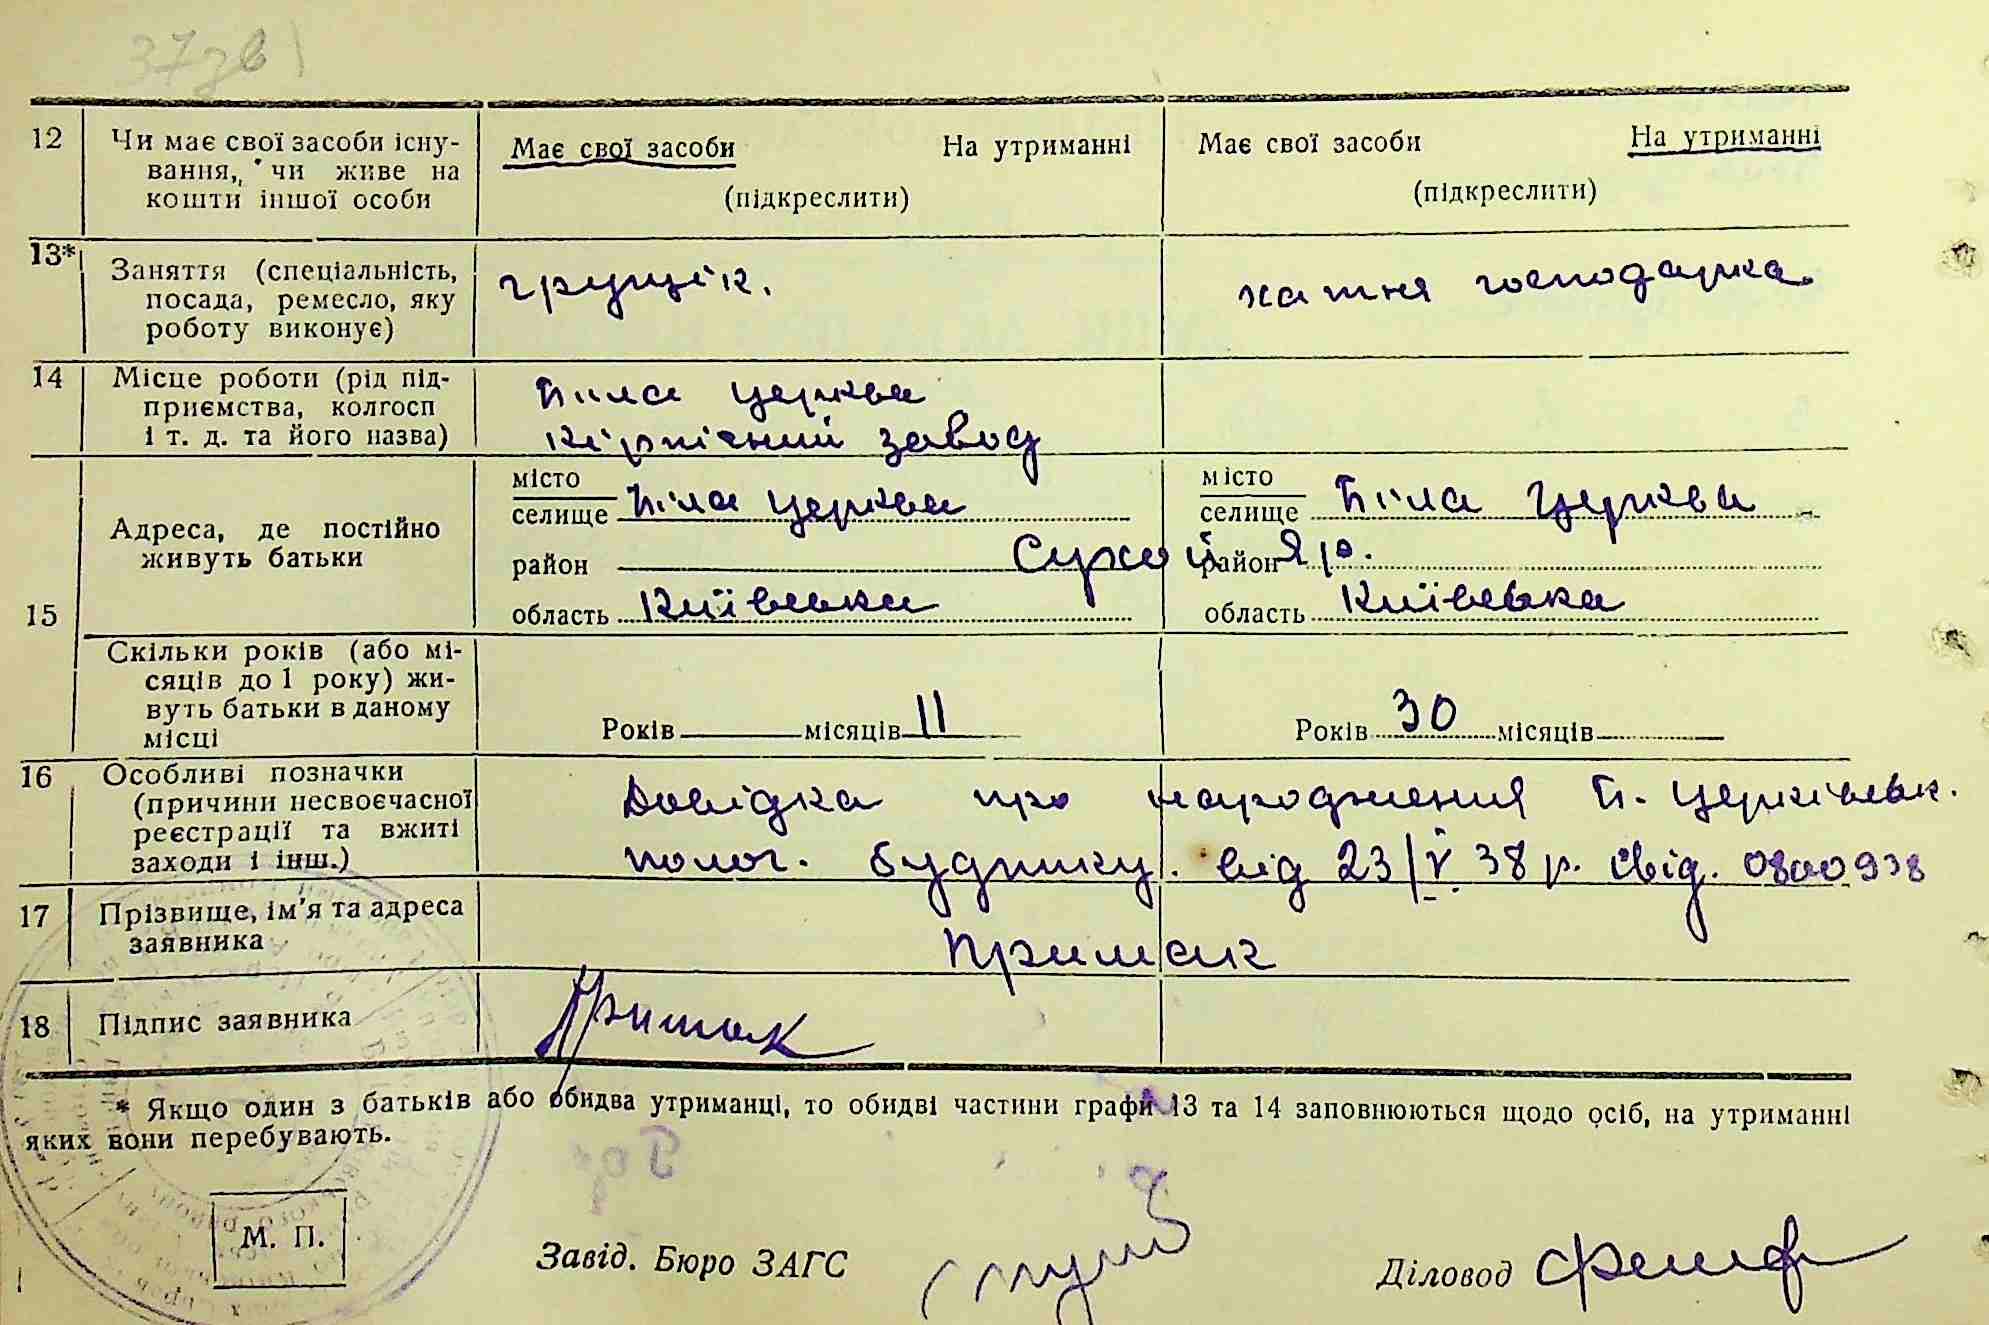 37зв
12 Чи має свої засоби існу- Має свої засоби На утриманні Має свої засоби На утриманні
вання, чи живе на (підкреслити) (підкреслити)
кошти іншої особи
13* Заняття (спеціальність, грущік. хатня господарка.
посада, ремесло, яку
роботу виконує)
14 Місце роботи (рід під- Біла церква
приємства, колгосп
і т. д. та його назва) кірпічний завод
місто місто
селище Біла церква селище Біла Церква
Адреса, де постійно
живуть батьки район Сухой Яр. район
15 область Київська область Київська
Скільки років (або мі-
сяців до 1 року) жи-
вуть батьки в даному Років місяців 11 Років 30 місяців
місці
16 Особливі позначки Довідка про народження Б. Церківськ.
(причини несвоєчасної
реєстрації та вжиті полог. будинку. від 23/V 38 р. свід. 0800938
заходи і інш.)
17 Прізвище, ім'я та адреса Примак
заявника
18 Підпис заявника Примак
* Якщо один з батьків або обидва утриманці, то обидві частини графи 13 та 14 заповнюються щодо осіб, на утриманні
яких вони перебувають.
М. П.
Завід. Бюро ЗАГС
Діловод